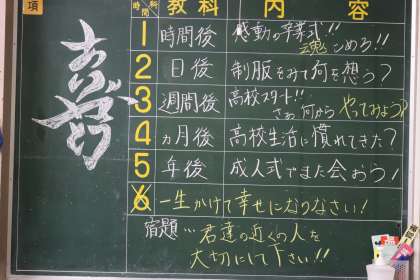 項
時間 科 教科 内容
1 時間後 感動の卒業式!!
魂こめろ!!
2 日後 制服をみて何を想う?
3 週間後 高校スタート!!
さぁ 何から やってみよう?
4 ヵ月後 高校生活に慣れてきた?
5 年後 成人式でまた会おう!
6 一生かけて幸せになりなさい!
宿題… 君達の近くの人を
大切にして下さい!!